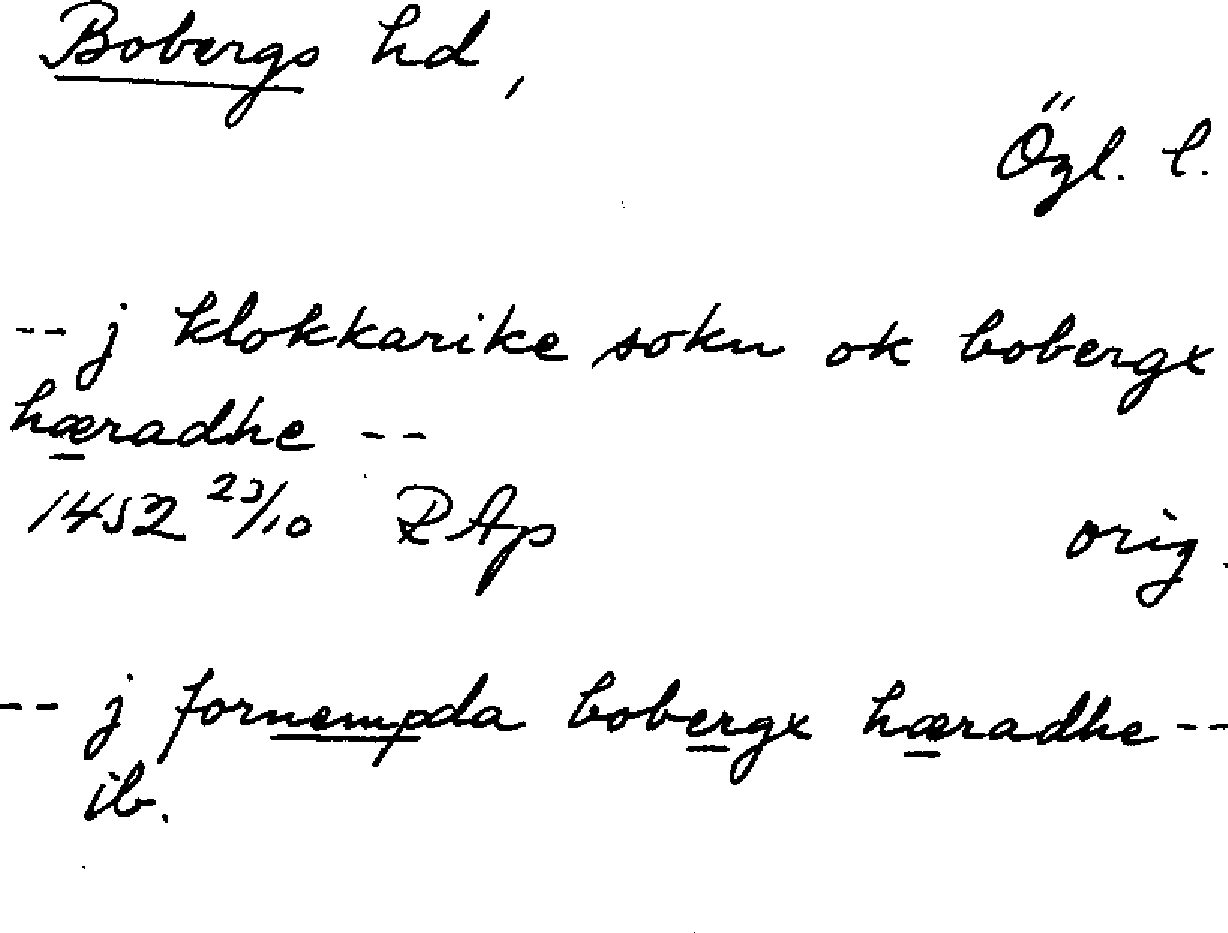 Bobergs hd,
Ögl. l.
-- j klokkarike sokn ok bobergx
hæradhe --
1452 23/10 RAp orig.
-- j fornempda bobergx hæradhe --
ib.